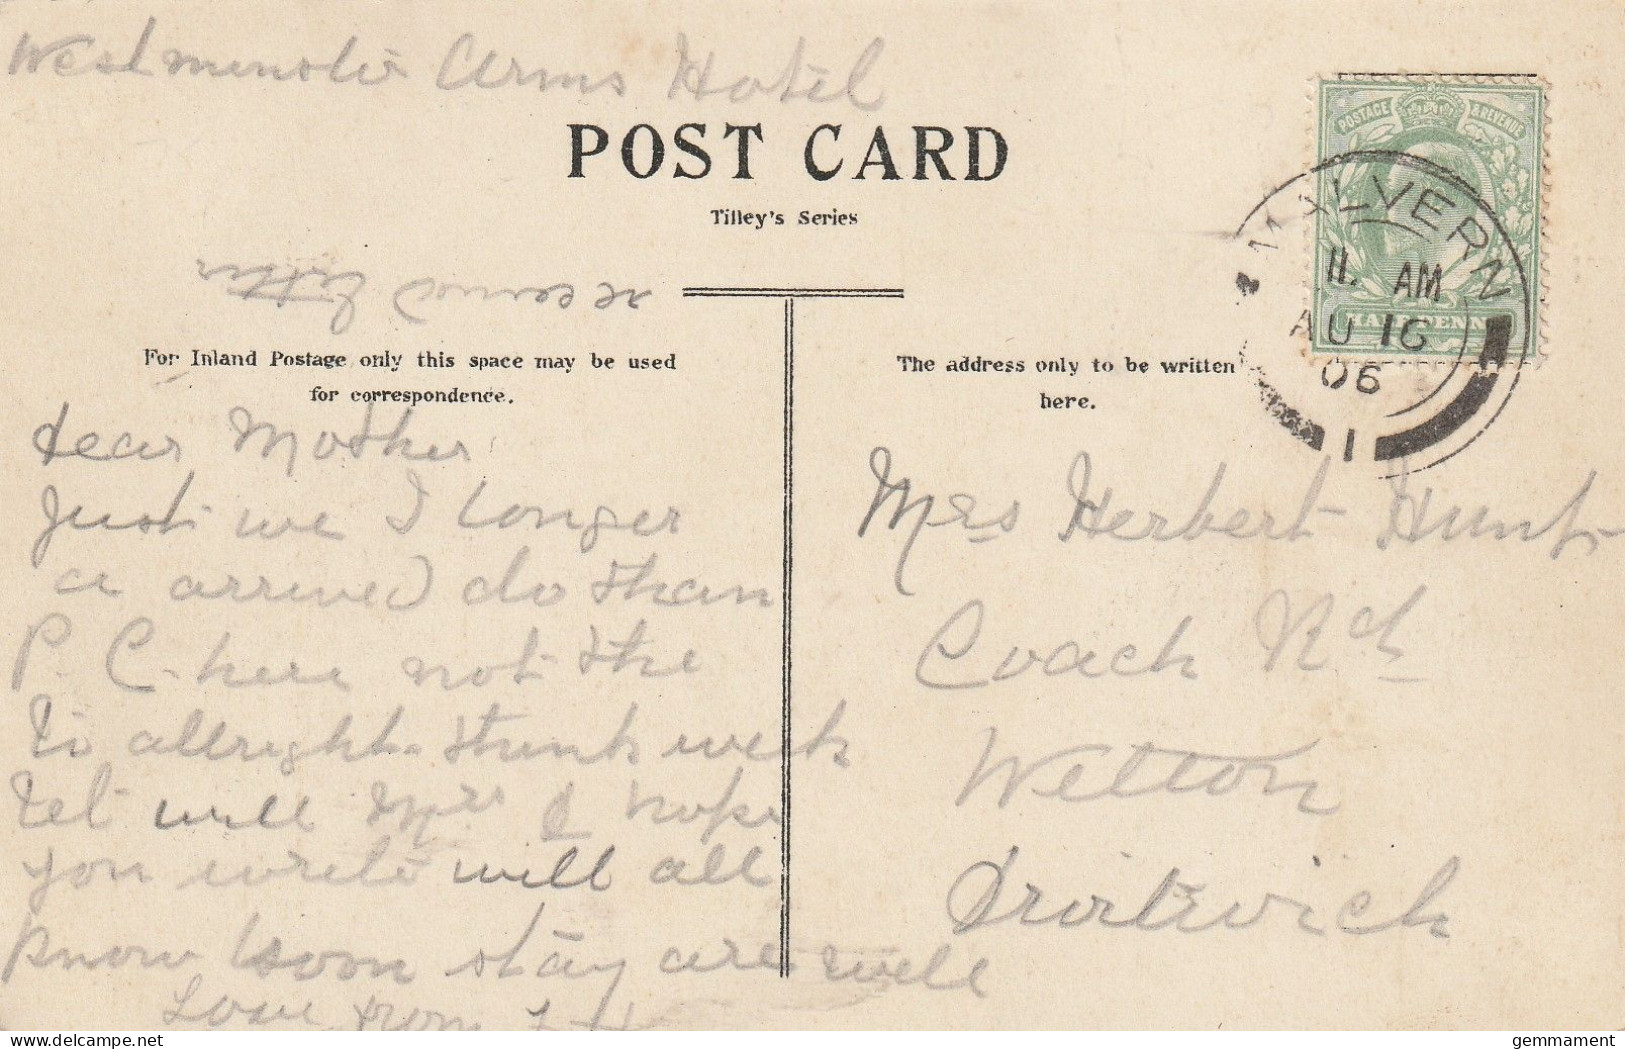 Westminster Arms Hotel
POST CARD
Tilley's Series
second letter
For Inland Postage only this space may be used
for correspondence.
The address only to be written
here.
POSTAGE & REVENUE
HALFPENNY
MALVERN
11. AM
AU 16
06
1
Dear Mother
Just we I longer
a arrived do than
P. C. here not the
to allright think week
Let will Mrs & hope
you write will all
know soon stay are well
Love from
Mrs Herbert Hunt
Coach Rd
Wetton
Droitwich
gemmament